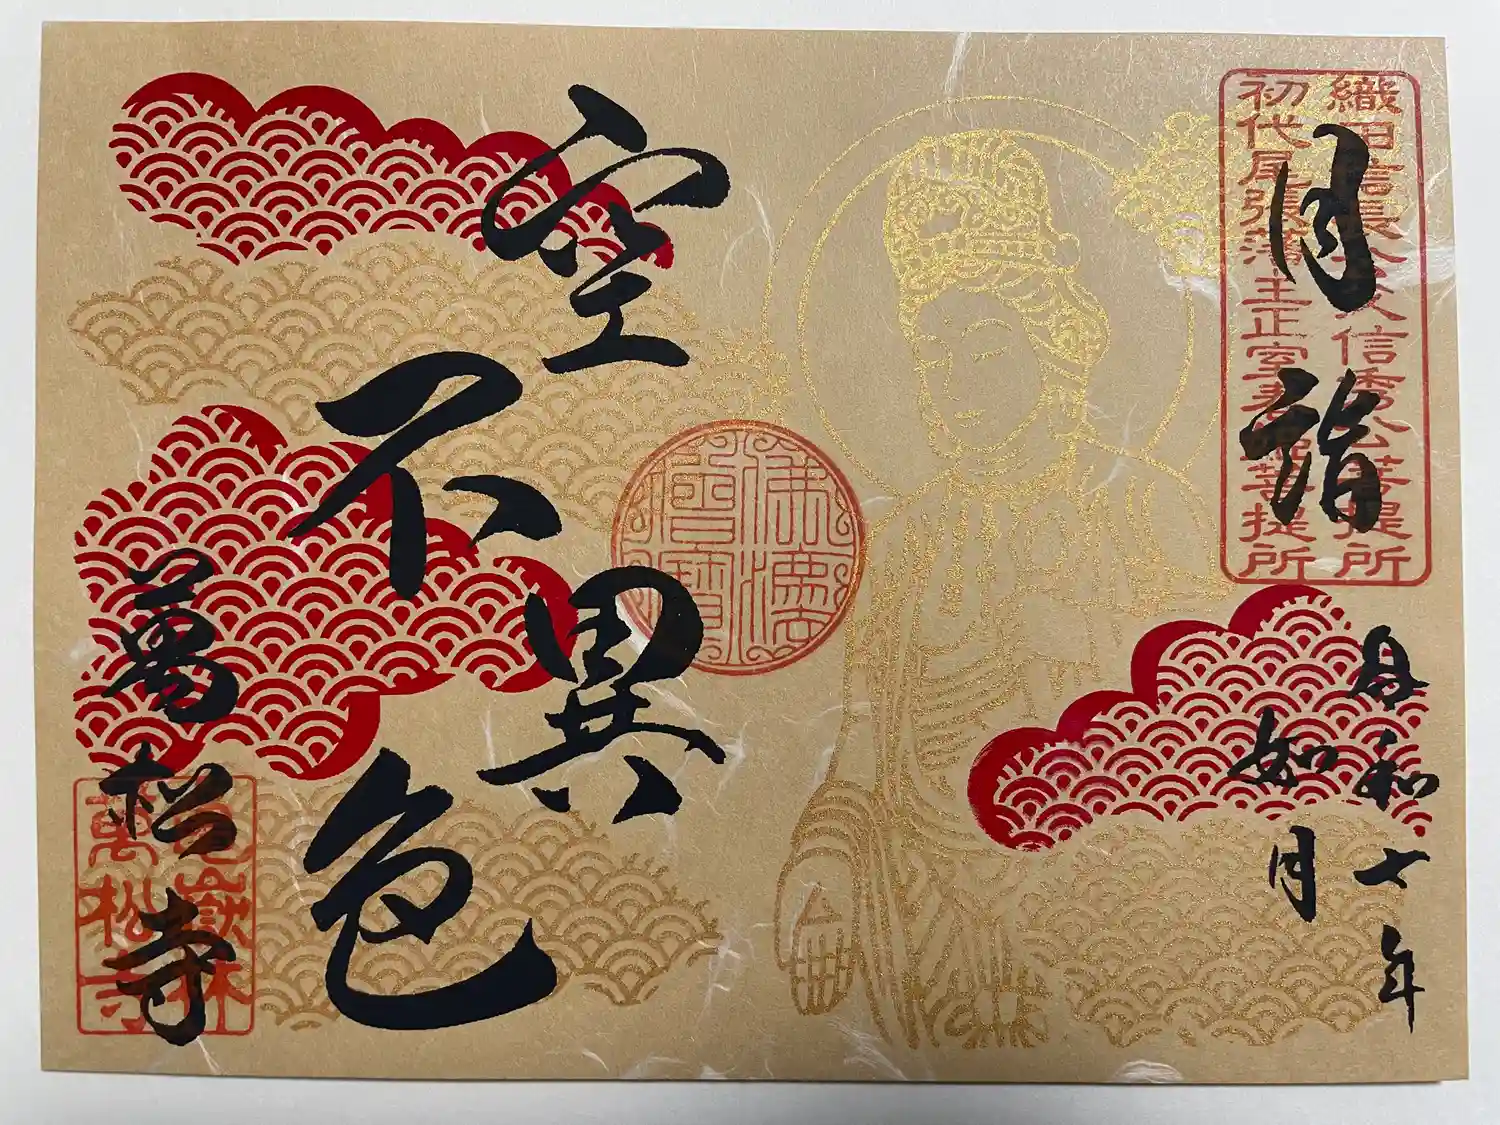 織田信長公父信秀公菩提所
初代尾張藩主正室春姫菩提所
月詣
令和七年
如月
佛法僧寶
空不異色
萬松寺
亀嶽林
萬松寺